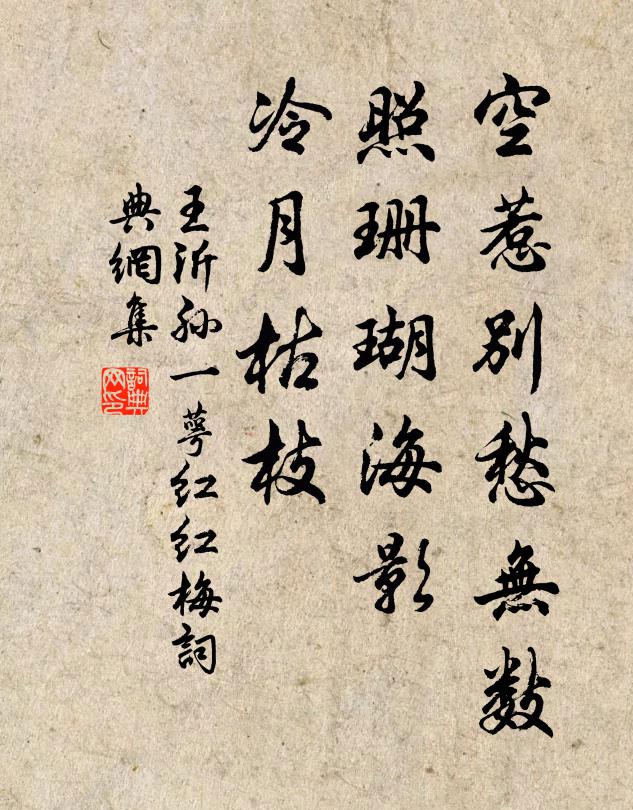 空惹別愁無數
照珊瑚海影
冷月枯枝
王沂孫一萼紅紅梅詞
典網集
詞典網印